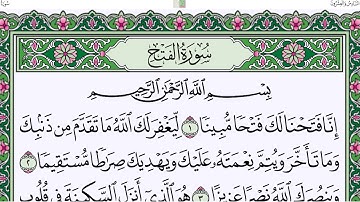 سُورَةُ الفَتْحِ
بِسْمِ اللَّهِ الرَّحْمَٰنِ الرَّحِيمِ
إِنَّا فَتَحْنَا لَكَ فَتْحًا مُّبِينًا ١ لِّيَغْفِرَ لَكَ اللَّهُ مَا تَقَدَّمَ مِن ذَنۢبِكَ
وَمَا تَأَخَّرَ وَيُتِمَّ نِعْمَتَهُۥ عَلَيْكَ وَيَهْدِيَكَ صِرَٰطًا مُّسْتَقِيمًا ٢
وَيَنصُرَكَ اللَّهُ نَصْرًا عَزِيزًا ٣ هُوَ الَّذِىٓ أَنزَلَ السَّكِينَةَ فِى قُلُوبِ